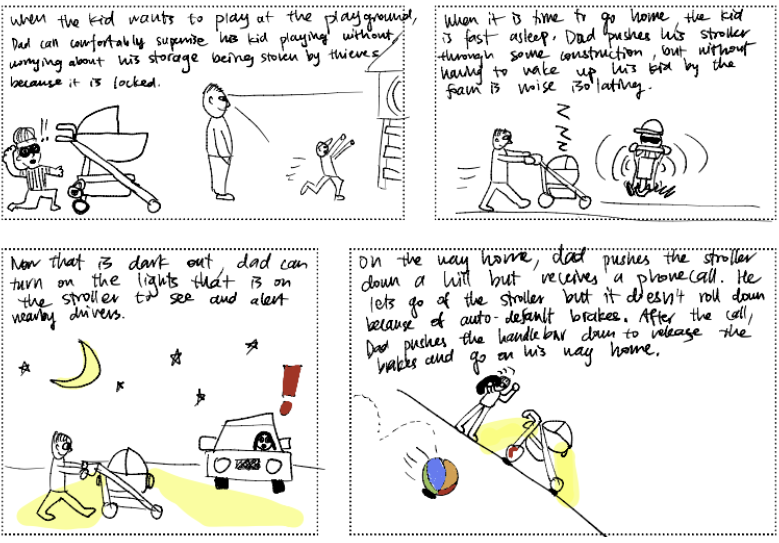 When the kid wants to play at the playground,
Dad can comfortably supervise his kid playing without
worrying about his storage being stolen by thieves
because it is locked.
!!
When it is time to go home, the kid
is fast asleep. Dad pushes his stroller
through some construction, but without
having to wake up his kid by the
foam is noise isolating.
Z
Z
Z
Z
Now that is dark out, dad can
turn on the lights that is on
the stroller to see and alert
nearby drivers.
!
On the way home, dad pushes the stroller
down a hill but receives a phonecall. He
lets go of the stroller but it doesn't roll down
because of auto-default brakes. After the call,
Dad pushes the handlebar down to release the
brakes and go on his way home.